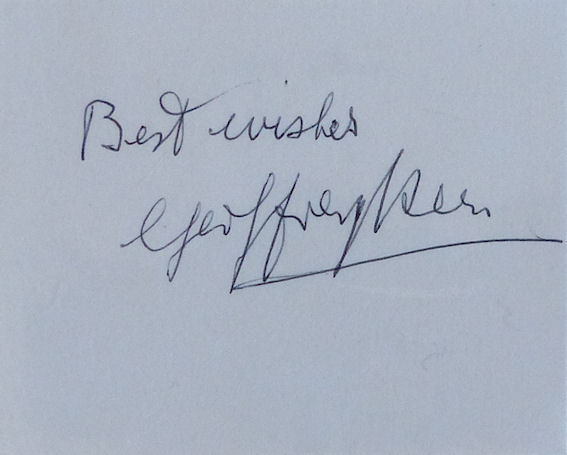 Best wishes
Geoffrey Keen